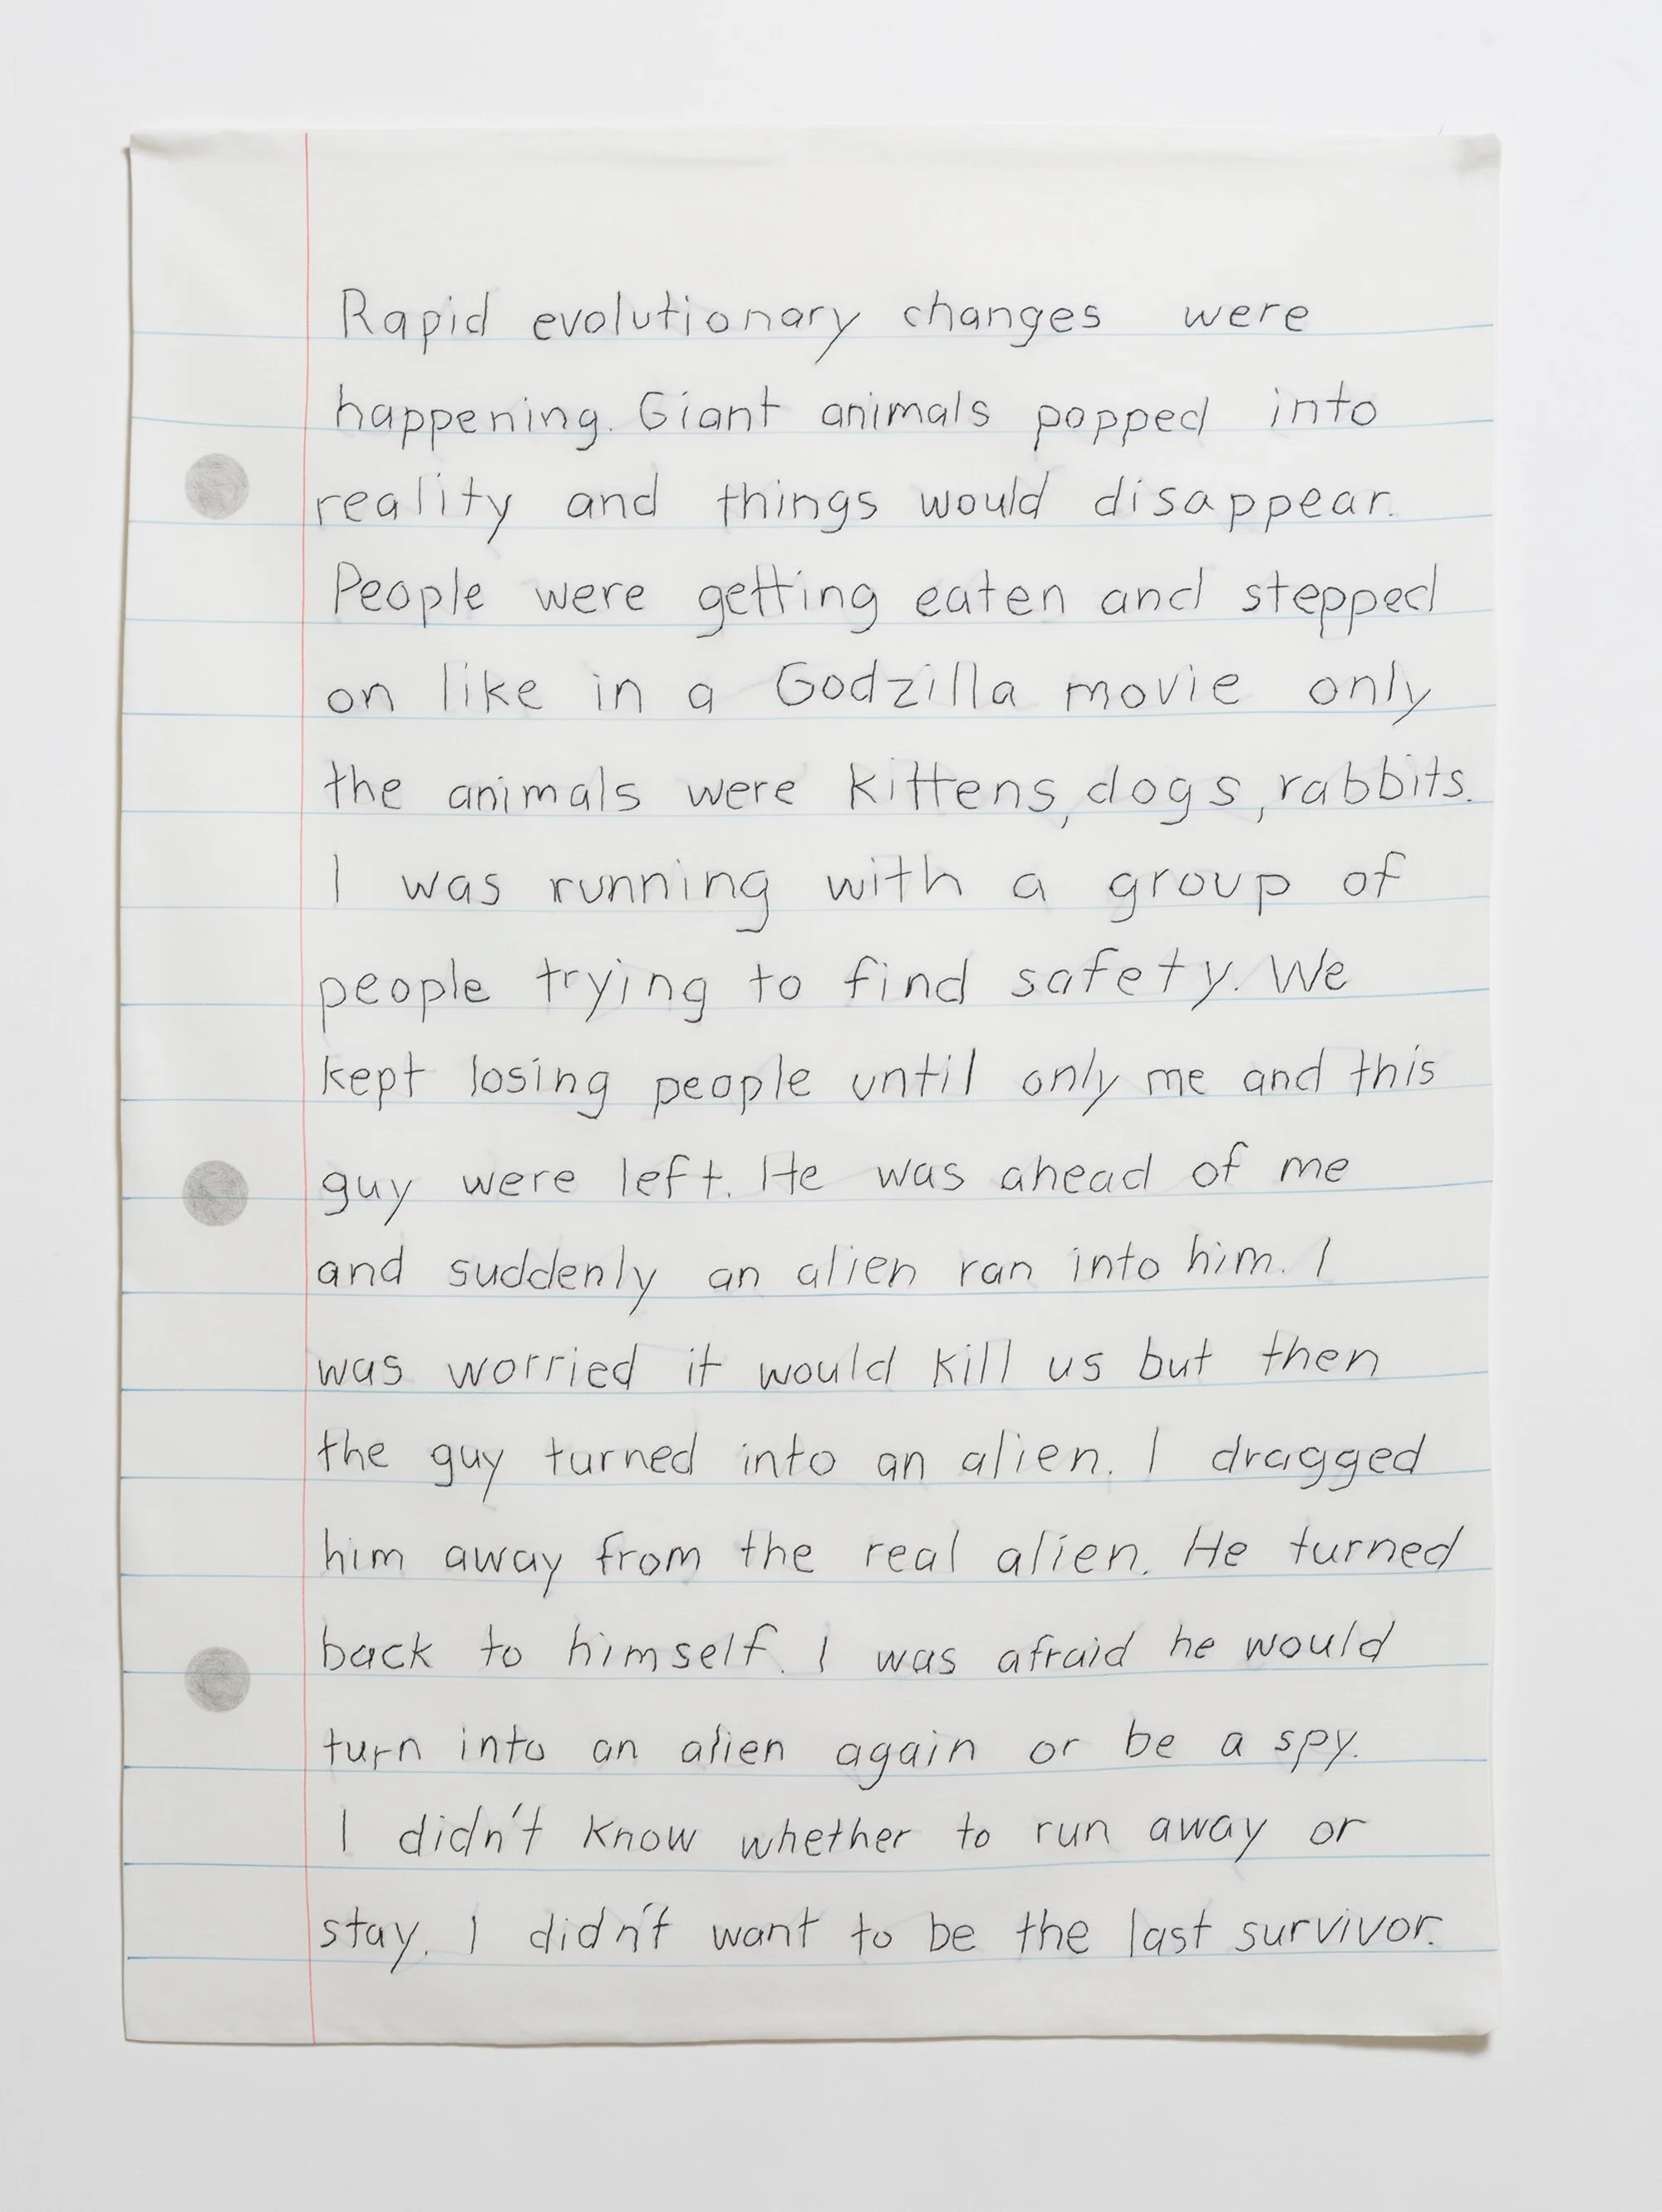 Rapid evolutionary changes were
happening. Giant animals popped into
reality and things would disappear.
People were getting eaten and stepped
on like in a Godzilla movie only
the animals were kittens, dogs, rabbits.
I was running with a group of
people trying to find safety. We
kept losing people until only me and this
guy were left. He was ahead of me
and suddenly an alien ran into him. I
was worried it would kill us but then
the guy turned into an alien. I dragged
him away from the real alien. He turned
back to himself. I was afraid he would
turn into an alien again or be a spy.
I didn't know whether to run away or
stay. I didn't want to be the last survivor.